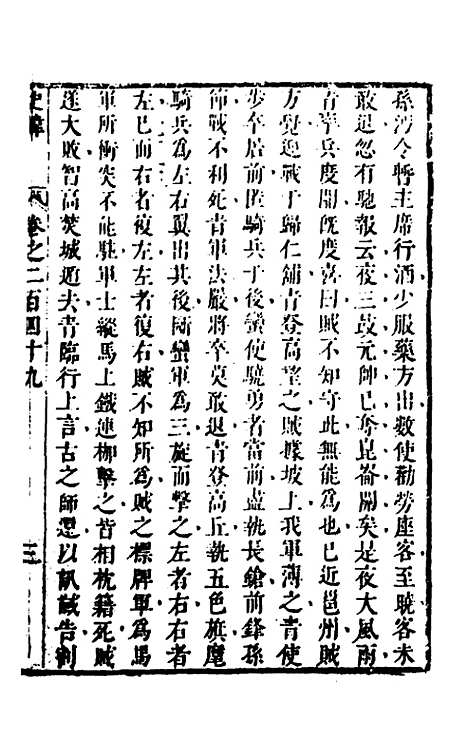 孫沔令暫主席行酒少服藥方出數使勸勞座客至曉客未
敢退忽有馳報云夜三鼓元帥已奪崑崙關矣是夜大風雨
青率兵度關旣度喜曰賊不知守此無能爲也已近邕州賊
方覺迎戰于歸仁舖青登高望之賊據坡上我軍薄之青使
步卒居前匿騎兵于後蠻使驍勇者當前盡執長鎗前鋒孫
節戰不利死青軍法嚴將卒莫敢退青登高丘執五色旗麾
騎兵爲左右翼出其後斷蠻軍爲三旋而擊之左者右右者
左已而右者復左左者復右賊不知所爲賊之標牌軍爲馬
軍所衝突不能駐軍士縱馬上鐵連枷擊之皆相枕籍死賊
遂大敗智高焚城遁去青臨行上言古之師還以訊馘告制
史緯 卷之二百四十九 三